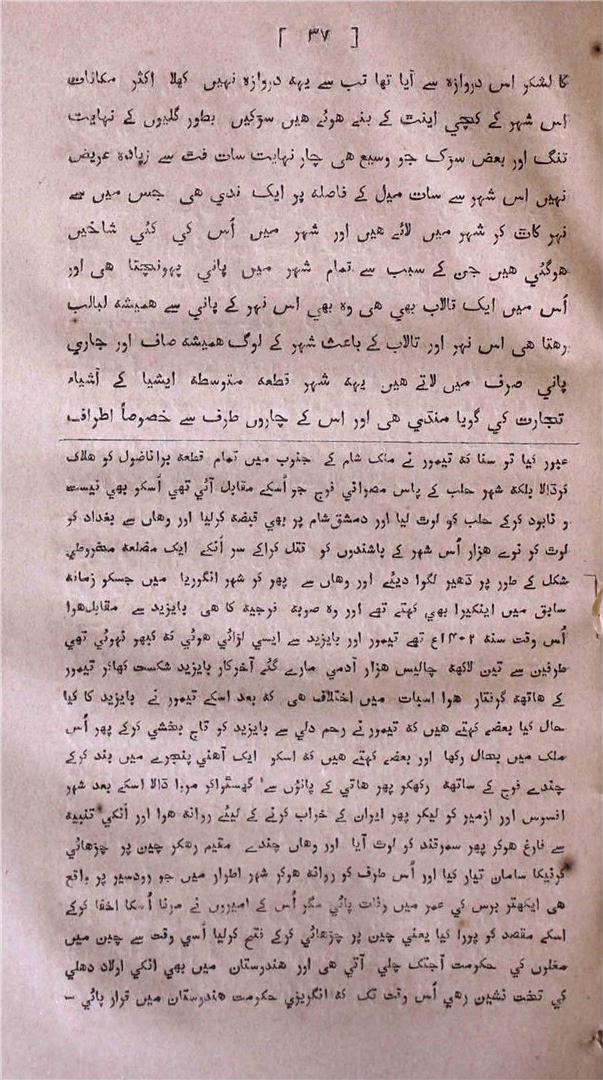 [ ٣٧ ]
کا لشکر اس دروازہ سے آیا تھا تب سے یہہ دروازہ نہیں کھلا اکثر مکانات
اس شہر کے کچي اینٹ کے بنے ھوئے ھیں سڑکیں بطور گلیوں کے نہایت
تنگ اور بعض سڑک جو وسیع ھی چار نہایت سات فٹ سے زیادہ عریض
نہیں اس شہر سے سات میل کے فاصلہ پر ایک ندي ھی جس میں سے
نہر کاٹ کر شہر میں لائے ھیں اور شہر میں اُس کي کئي شاخیں
ھوگئي ھیں جن کے سبب سے تمام شہر میں پاني پہونچتا ھی اور
اُس میں ایک تالاب بھي ھی وہ بھي اس نہر کے پاني سے ھمیشہ لبالب
رھتا ھی اس نہر اور تالاب کے باعث شہر کے لوگ ھمیشہ صاف اور جاري
پاني صرف میں لاتے ھیں یہہ شہر قطعہ متوسطہ ایشیا کے اشیاء
تجارت کي گویا منڈي ھی اور اس کے چاروں طرف سے خصوصاً اطراف
عبور کیا تو سنا کہ تیمور نے ملک شام کے جنوب میں تمام قطعہ براناضول کو ھلاک
کرڈالا بلکہ شہر حلب کے پاس مصراني فوج جو اُسکے مقابل آئي تھي اُسکو بھي نیست
و نابود کرکے حلب کو لوٹ لیا اور دمشق شام پر بھي قبضہ کرلیا اور وھاں سے بغداد کو
لوٹ کو نوے ھزار اُس شہر کے باشندوں کو قتل کراکے سر اُنکے ایک مضلعہ مخروطي
شکل کے طور پر ڈھیر لگوا دیئے اور وھاں سے پھر کو شہر انگوریا میں جسکو زمانہ
سابق میں اینکیرا بھي کہتے تھے اور وہ صوبہ فرجیہ کا ھی بایزید سے مقابل ھوا
اُس وقت سنہ ١۴٠٢ع تھے تیمور اور بایزید سے ایسي لڑائي ھوئي کہ کبھو نہوئي تھي
طرفین سے تین لاکھہ چالیس ھزار آدمي مارے گئے آخرکار بایزید شکست کھاکر تیمور
کے ھاتھہ گرفتار ھوا اسبات میں اختلاف ھی کہ بعد اسکے تیمور نے بایزید کا کیا
حال کیا بعضے کہتے ھیں کہ تیمور نے رحم دلي سے بایزید کو تاج بخشي کرکے پھر اُس
ملک میں بحال رکھا اور بعضے کہتے ھیں کہ اسکو ایک آھني پنجرے میں بند کرکے
چندے فوج کے ساتھہ رکھکر پھر ھاتي کے پانؤں سے گھسٹواکر مروا ڈالا اسکے بعد شہر
افسوس اور ازمیر کو لیکر پھر ایران کے خراب کرنے کے لیئے روانہ ھوا اور اُنکي تنبیہ
سے فارغ ھوکر پھر سمرقند کو لوٹ آیا اور وھاں چندے مقیم رھکر چین پر چڑھائي
کرنیکا سامان تیار کیا اور اُس طرف کو روانہ ھوکر شہر اطرار میں جو رودسیر پر واقع
ھی ایکھتر برس کي عمر میں وفات پائي مگر اُس کے امیروں نے مرنا اُسکا اخفا کرکے
اسکے مقصد کو پورا کیا یعني چین پر چڑھائي کرکے فتح کرلیا اُسي وقت سے چین میں
مغلوں کي حکومت آجتک چلي آتي ھی اور ھندوستان میں بھي انکي اولاد دھلي
کي تخت نشین رھي اُس وقت تک کہ انگریزي حکومت ھندوستان میں قرار پائي —